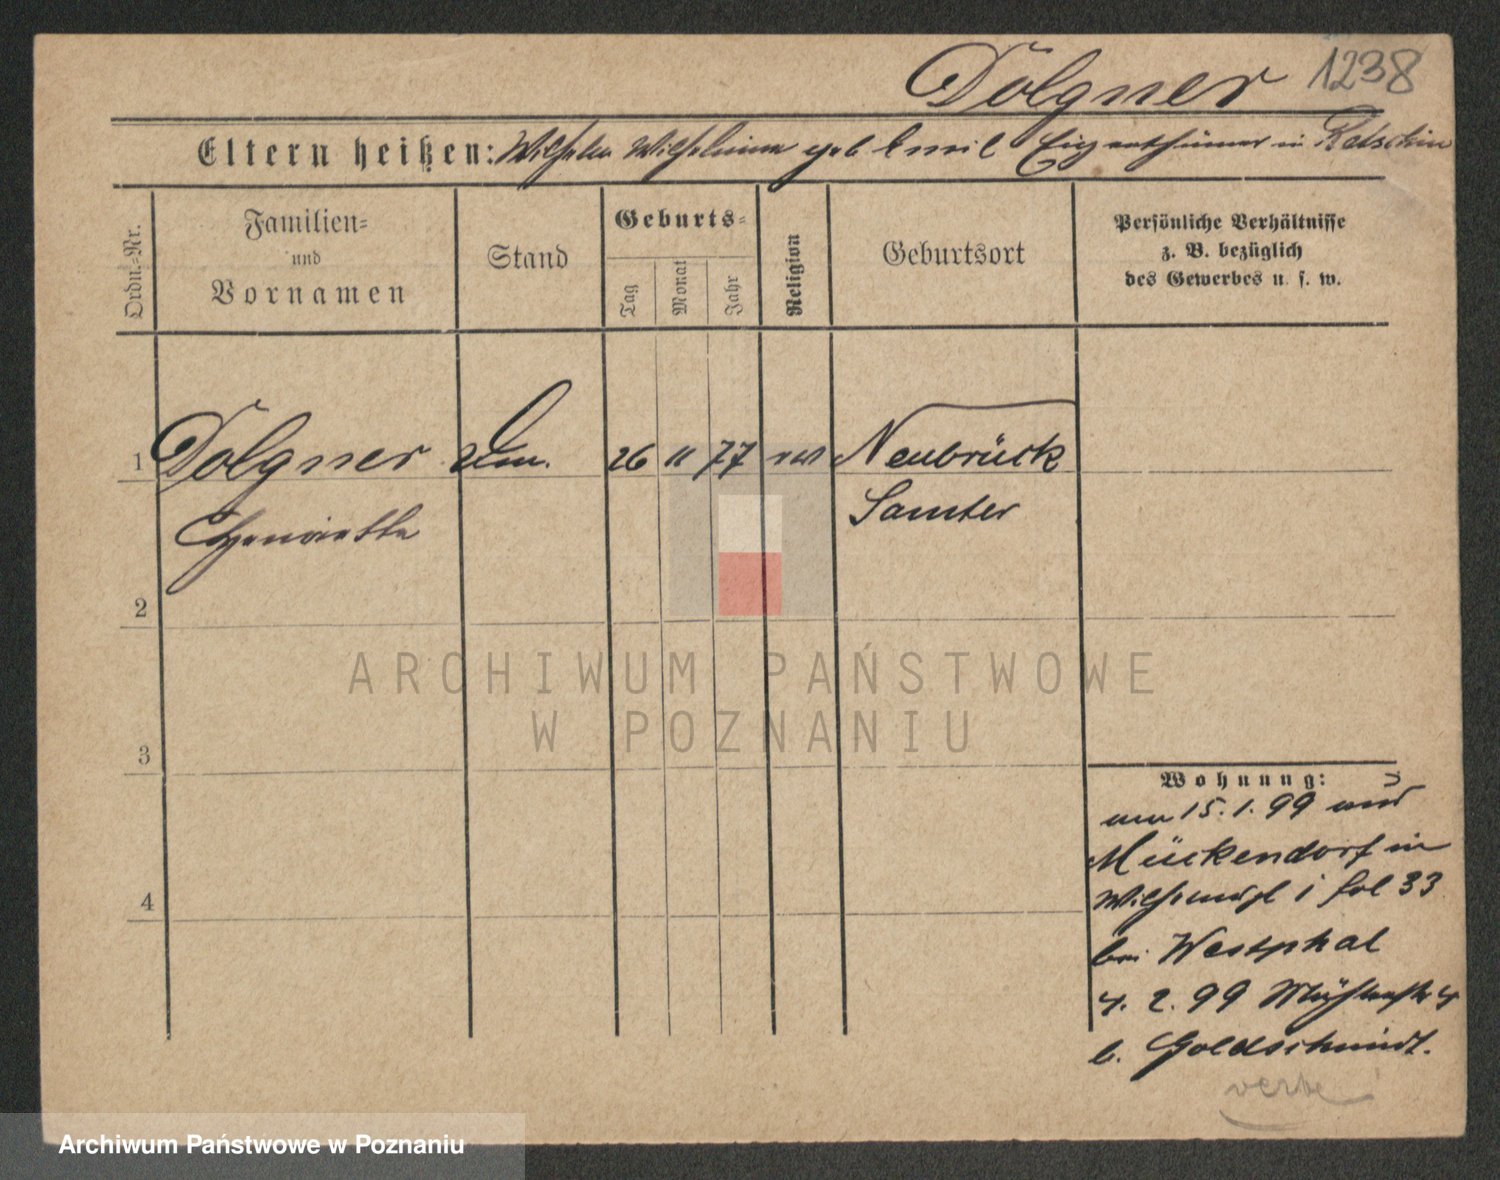 Dolgner 1238
Eltern heißen: Wilhelm Wilhelmine geb Emil Eigenthümer in Retschin
Ordn.-Nr.
Familien-
und
Vornamen
Stand
Geburts-
Tag
Monat
Jahr
Religion
Geburtsort
Persönliche Verhältnisse
z. B. bezüglich
des Gewerbes u. s. w.
1 Dolgner 26 11 77 ev Neubrück
Henriette Samter
2
3
4
Wohnung:
am 15. 1. 99 aus
Mückendorf in
i fol 33
bei Westphal
4. 2. 99 Mühlenstr 4
b. Goldschmidt.
verte
ARCHIWUM PAŃSTWOWE
W POZNANIU
Archiwum Państwowe w Poznaniu